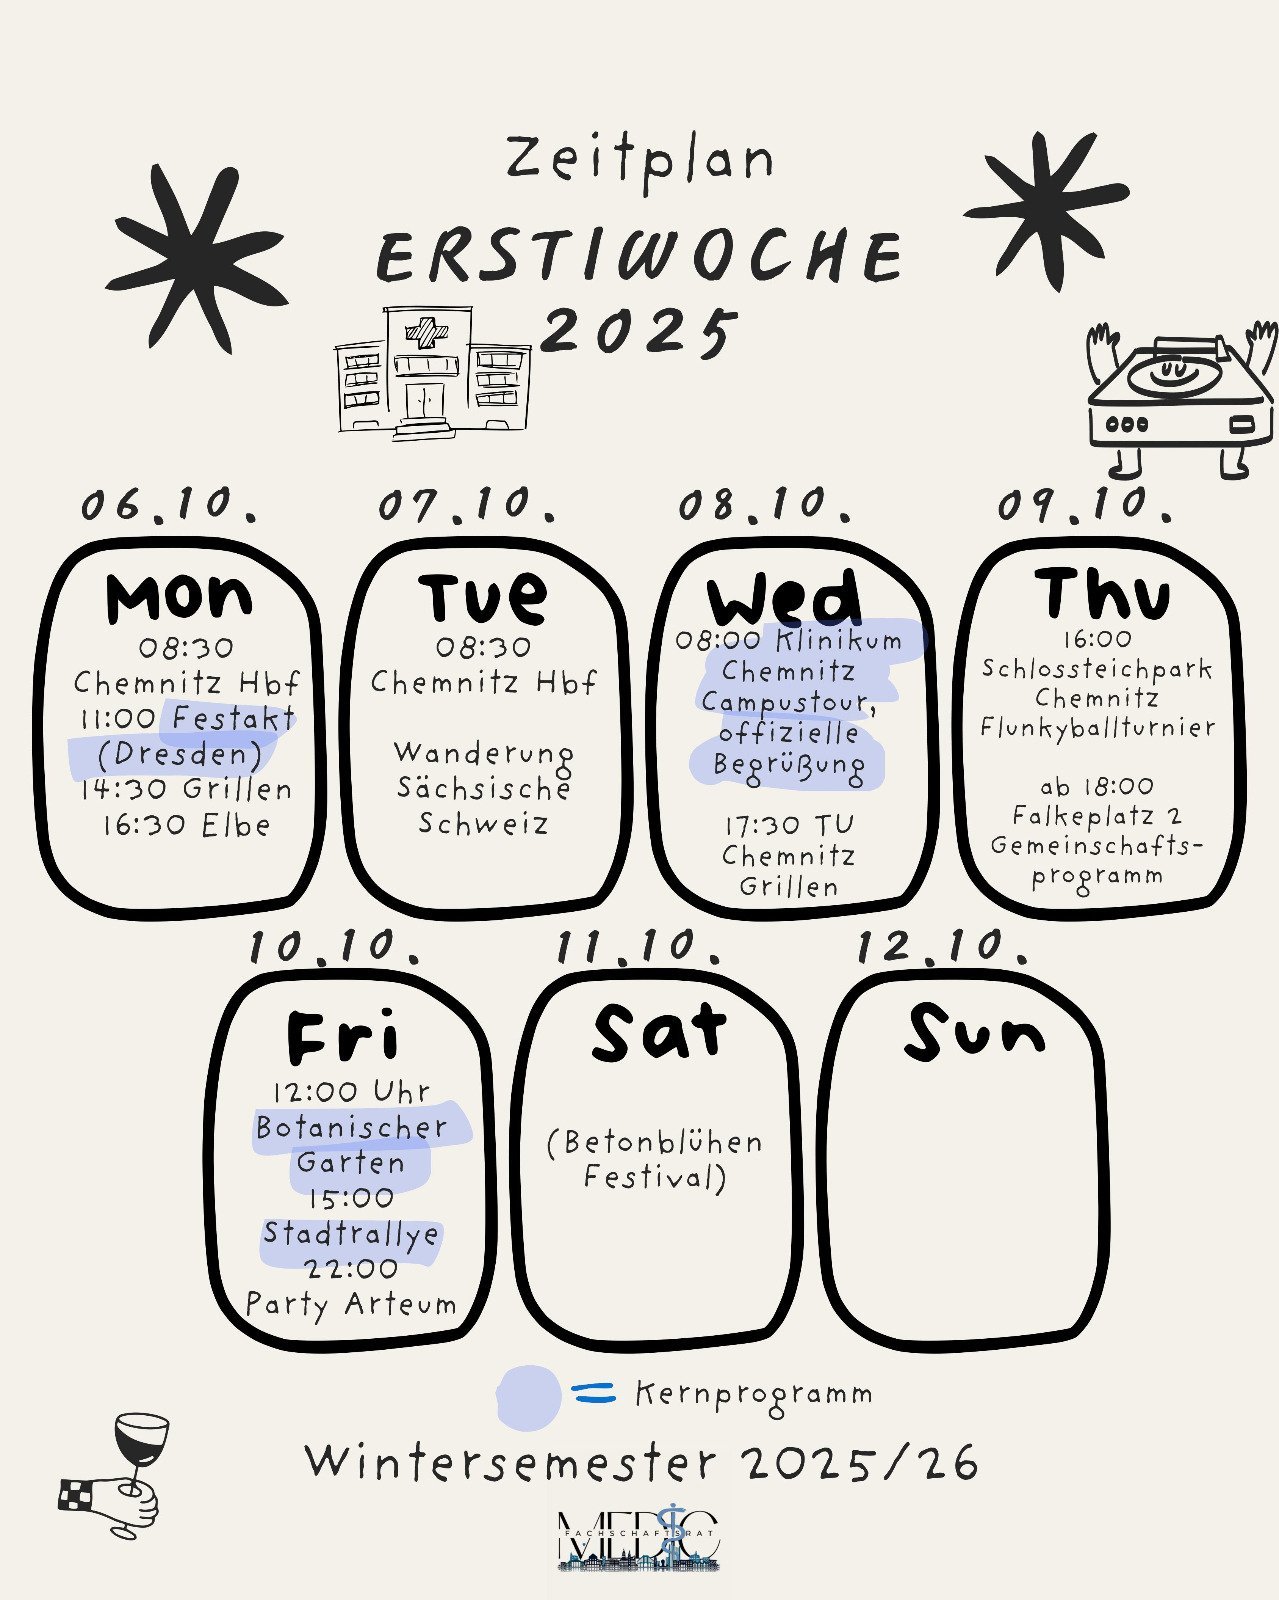 Zeitplan
ERSTIWOCHE
2025
06.10.
Mon
08:30
Chemnitz Hbf
11:00 Festakt
(Dresden)
14:30 Grillen
16:30 Elbe
07.10.
Tue
08:30
Chemnitz Hbf
Wanderung
Sächsische
Schweiz
08.10.
Wed
08:00 Klinikum
Chemnitz
Campustour,
offizielle
Begrüßung
17:30 TU
Chemnitz
Grillen
09.10.
Thu
16:00
Schlossteichpark
Chemnitz
Flunkyballturnier
ab 18:00
Falkeplatz 2
Gemeinschafts-
programm
10.10.
Fri
12:00 Uhr
Botanischer
Garten
15:00
Stadtrallye
22:00
Party Arteum
11.10.
Sat
(Betonblühen
Festival)
12.10.
Sun
= Kernprogramm
Wintersemester 2025/26
MEDIC
FACHSCHAFTSRAT